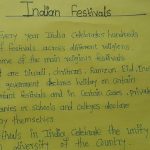 Indian Festivals
Every year India celebrates hundreds
of festivals across different religions
some of the main religious festivals
are Diwali, christmas, Ramzan Eid,
government declares holiday on certain
festivals and in certain cases, private
or schools and colleges declare
by themselves
festivals in India celebrate the unity
diversity of the country